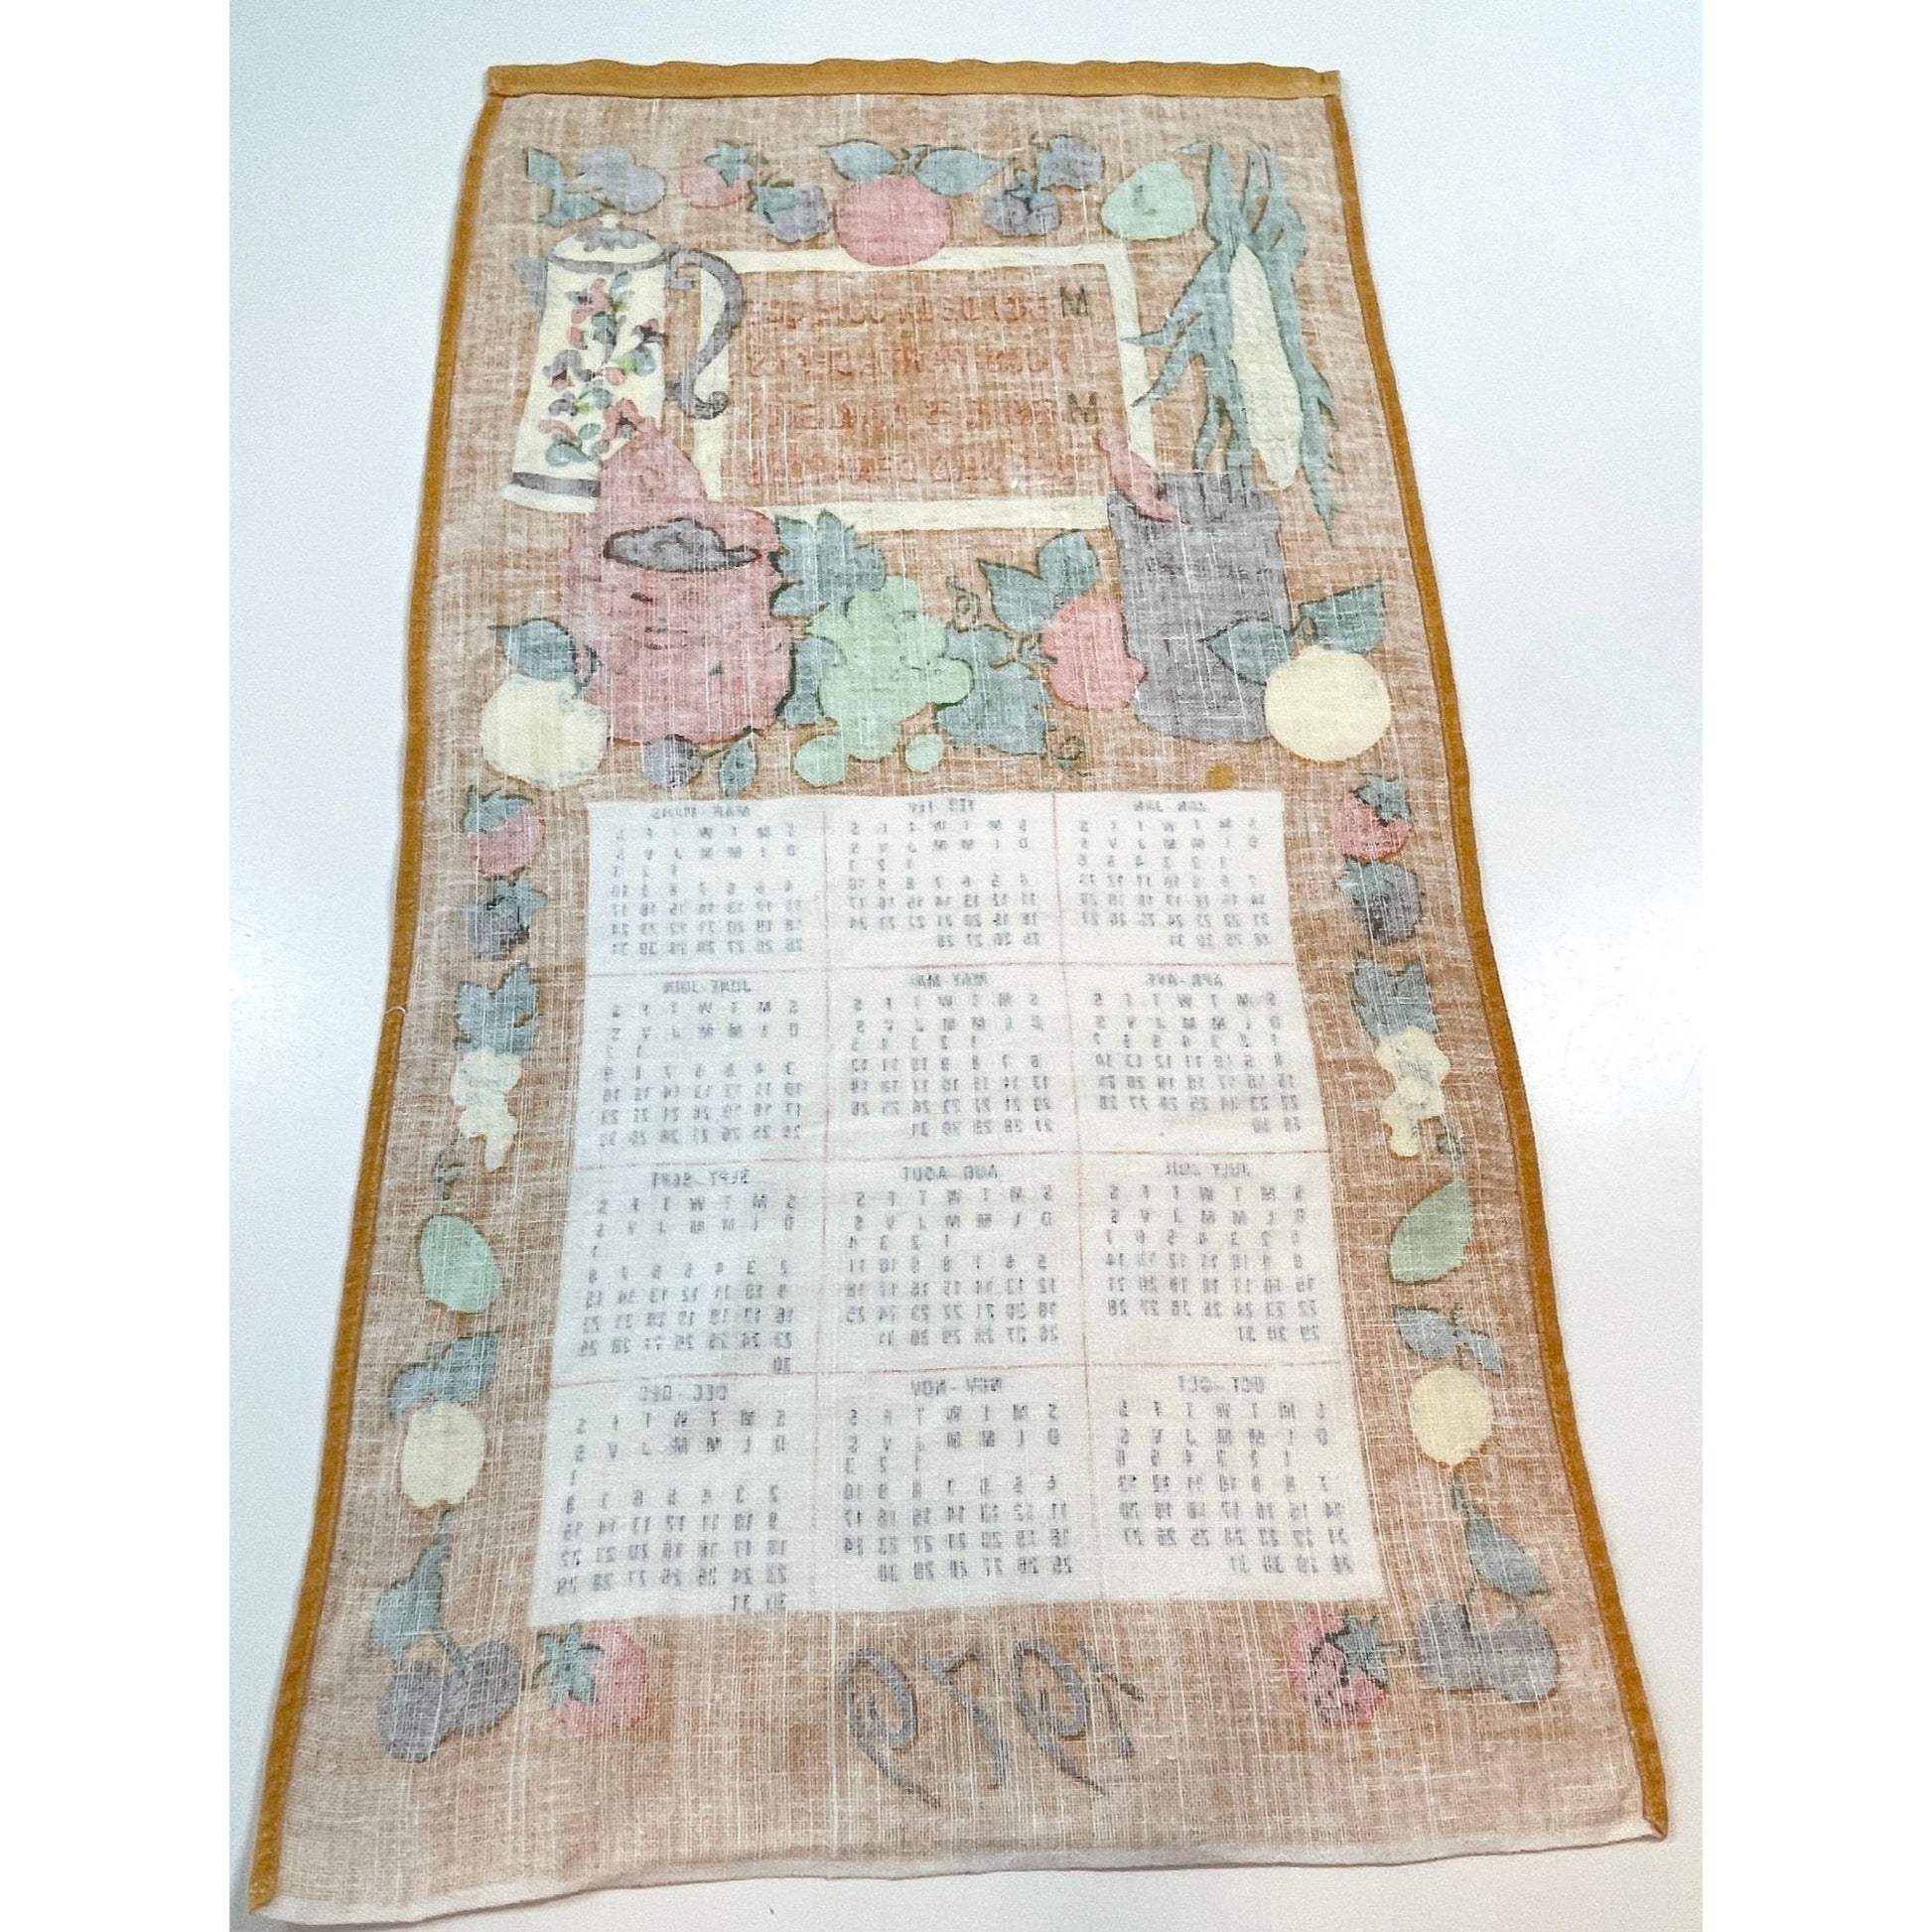 JAN-JAN
S M T W T F S
D L M M J V S
1 2 3 4 5 6
7 8 9 10 11 12 13
14 15 16 17 18 19 20
21 22 23 24 25 26 27
28 29 30 31
FEB-FEV
S M T W T F S
D L M M J V S
1 2 3
4 5 6 7 8 9 10
11 12 13 14 15 16 17
18 19 20 21 22 23 24
25 26 27 28
MAR-MARS
S M T W T F S
D L M M J V S
1 2 3
4 5 6 7 8 9 10
11 12 13 14 15 16 17
18 19 20 21 22 23 24
25 26 27 28 29 30 31
APR-AVR
S M T W T F S
D L M M J V S
1 2 3 4 5 6 7
8 9 10 11 12 13 14
15 16 17 18 19 20 21
22 23 24 25 26 27 28
29 30
MAY-MAI
S M T W T F S
D L M M J V S
1 2 3 4 5
6 7 8 9 10 11 12
13 14 15 16 17 18 19
20 21 22 23 24 25 26
27 28 29 30 31
JUNE-JUIN
S M T W T F S
D L M M J V S
1 2
3 4 5 6 7 8 9
10 11 12 13 14 15 16
17 18 19 20 21 22 23
24 25 26 27 28 29 30
JULY-JUIL
S M T W T F S
D L M M J V S
1 2 3 4 5 6 7
8 9 10 11 12 13 14
15 16 17 18 19 20 21
22 23 24 25 26 27 28
29 30 31
AUG-AOUT
S M T W T F S
D L M M J V S
1 2 3 4
5 6 7 8 9 10 11
12 13 14 15 16 17 18
19 20 21 22 23 24 25
26 27 28 29 30 31
SEPT-SEPT
S M T W T F S
D L M M J V S
1
2 3 4 5 6 7 8
9 10 11 12 13 14 15
16 17 18 19 20 21 22
23 24 25 26 27 28 29
30
OCT-OCT
S M T W T F S
D L M M J V S
1 2 3 4 5 6
7 8 9 10 11 12 13
14 15 16 17 18 19 20
21 22 23 24 25 26 27
28 29 30 31
NOV-NOV
S M T W T F S
D L M M J V S
1 2 3
4 5 6 7 8 9 10
11 12 13 14 15 16 17
18 19 20 21 22 23 24
25 26 27 28 29 30
DEC-DEC
S M T W T F S
D L M M J V S
1
2 3 4 5 6 7 8
9 10 11 12 13 14 15
16 17 18 19 20 21 22
23 24 25 26 27 28 29
30 31
1979